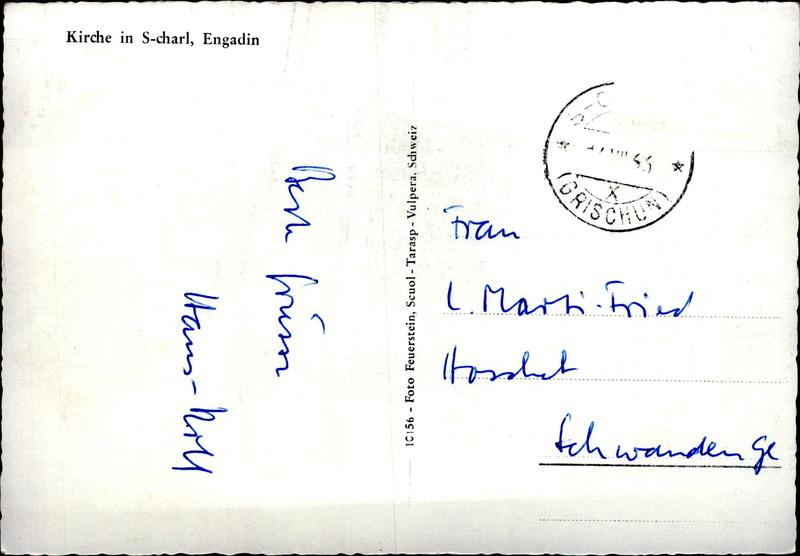 Kirche in S-charl, Engadin
Beste Grüsse
Hans-Rolf
10156 - Foto Feuerstein, Scuol-Tarasp-Vulpera, Schweiz
(GRISCHUN)
X
Frau
L. Marti-Fried
Schwanden Gl